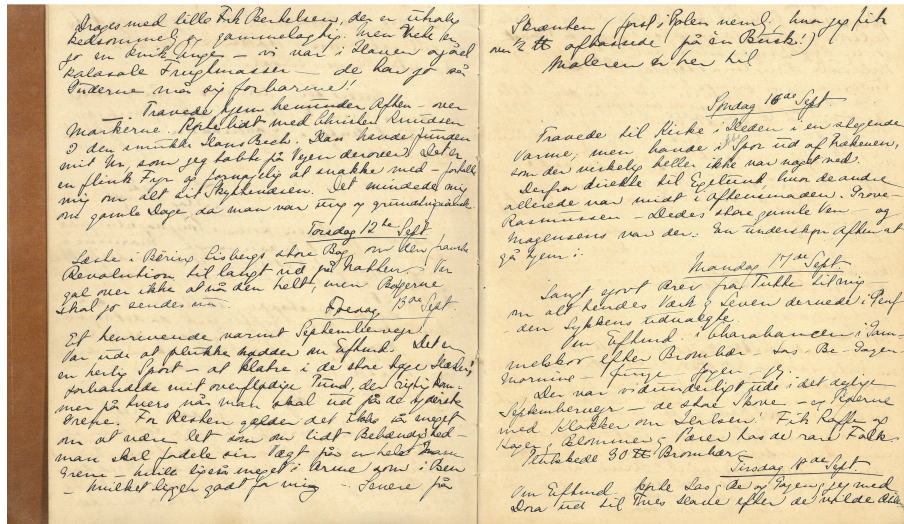 Drages med lille Frk Berkelsen, den er utrolig
kedsommelig og gammelagtig. Men Vete er
jo en kvik Unge – vi var i Haven og åd
kolossale Frugtmasser – de har jo så
Guderne må sig forbarme!
Travede hjem henunder Aften – over
Markerne. Fulgtes lidt med Christen Knudsen
og den smukke Hans Bech. Han havde funden
mit Ur, som jeg tabte på Vejen derover. Det er
en flink Fyr og fornøjelig at snakke med – fortalte
mig om alt sit Skyttevæsen. Det mindede mig
om gamle Dage, da man var ung og grundtvigiansk
Torsdag 12te Sept
Læste i Bering Lisbergs store Bog om den franske
Revolution til langt ud på Natten. Var
gal over ikke at nå den helt, men Bøgerne
skal jo sendes
Fredag 13de Sept.
Et henrivende varmt Septembervejr!
Var ude at plukke Nødder m Eftmd. Det er
en herlig Sport – at klatre i de store høje
forhandle mit overflødige Pund, der rigtig kom-
mer på tværs når man skal ud på de yderste
Grene. For Resten gælder det ikke så meget
om at være let som om lidt Behændighed –
man skal fordele sin Vægt på en helst
Grene – hvile ligeså meget i Arme som i Ben
– hvilket ligger godt for mig – Senere på
Skrænten (først i Polen nemlig hvor jeg fik
over 2 ℔ afhasede på én Busk!)
Maleren er her til
Søndag 16de Sept
Travede til Kirke i Heden i en stegende
Varme, men havde i Spor ud af Præken,
som der virkelig heller ikke var noget ved.
Derfra direkte til Egelund, hvor de andre
allerede var midt i Aftensmaden. Provst
Rasmussen – Dedes store gamle Ven – og
Mogensens var der. En underskøn Aften at
gå hjem i.
Mandag 17de Sept
Langt sjovt Brev fra Tutte til mig –
om alt hendes Værk og Leven dernede i Genf
– den Lykkens udvalgte.
Om Eftmd. i Charabancen i Gam-
melskov efter Brombær – Las – Be – Gagen
Morning – Junge – Jørgen – Jeg.
Der var vidunderligt ude i det dejlige
Septembervejr – de store Skove – og Køerne
med Klokker om Halsen! Fik Kaffe og
Kager og Blommer og Pærer hos de rare Folk.
Plukkede 30 ℔ Brombær.
Tirsdag 18de Sept.
Om Eftmd. kørte Las, Be og Gagen og jeg med
Dora ud til Tves Have efter de vilde